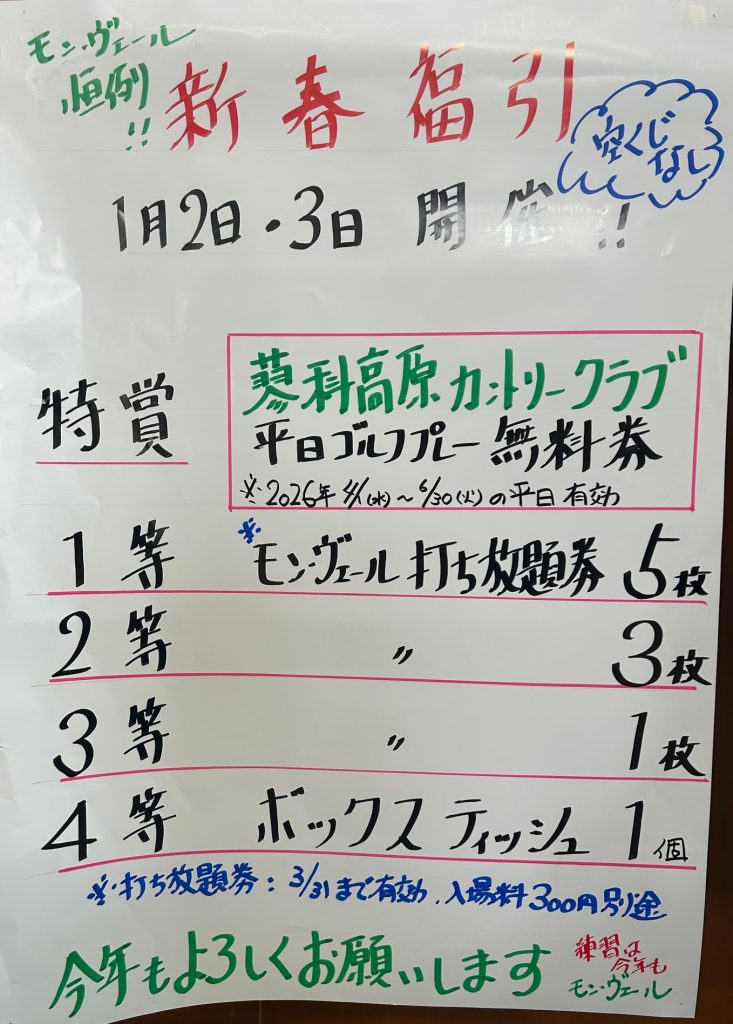 モン・ヴェール
恒例!!
新春福引
空くじ
なし
1月2日・3日 開催!!
特賞
蓼科高原カントリークラブ
平日ゴルフプレー無料券
※2026年4/1(水)～6/30(火)の平日有効
1等 ※モン・ヴェール打ち放題券 5枚
2等 〃 3枚
3等 〃 1枚
4等 ボックスティッシュ 1個
※打ち放題券:3/31まで有効、入場料300円別途
今年もよろしくお願いします
練習は
今年も
モン・ヴェール